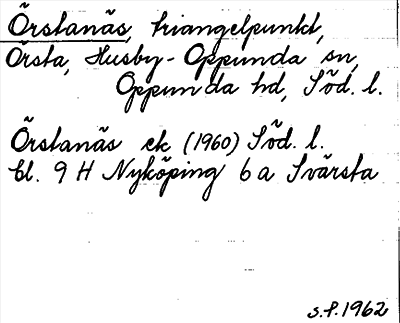 Örstanäs, triangelpunkt,
Örsta, Husby-Oppunda sn,
Oppunda hd, Söd. l.
Örstanäs ek (1960) Söd. l.
bl. 9 H Nyköping 6 a Svärta
s.f. 1962